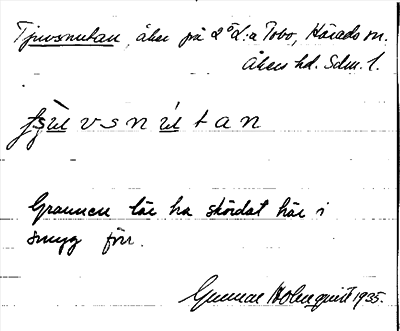 Tjuvsnutan, åker på 2 L:a Tobo, Härads sn.
Åkers hd. Sdm. l.
vsnutan
Grannen lär ha skördat här i
smyg förr.
Gunnar Holmquist 1935.